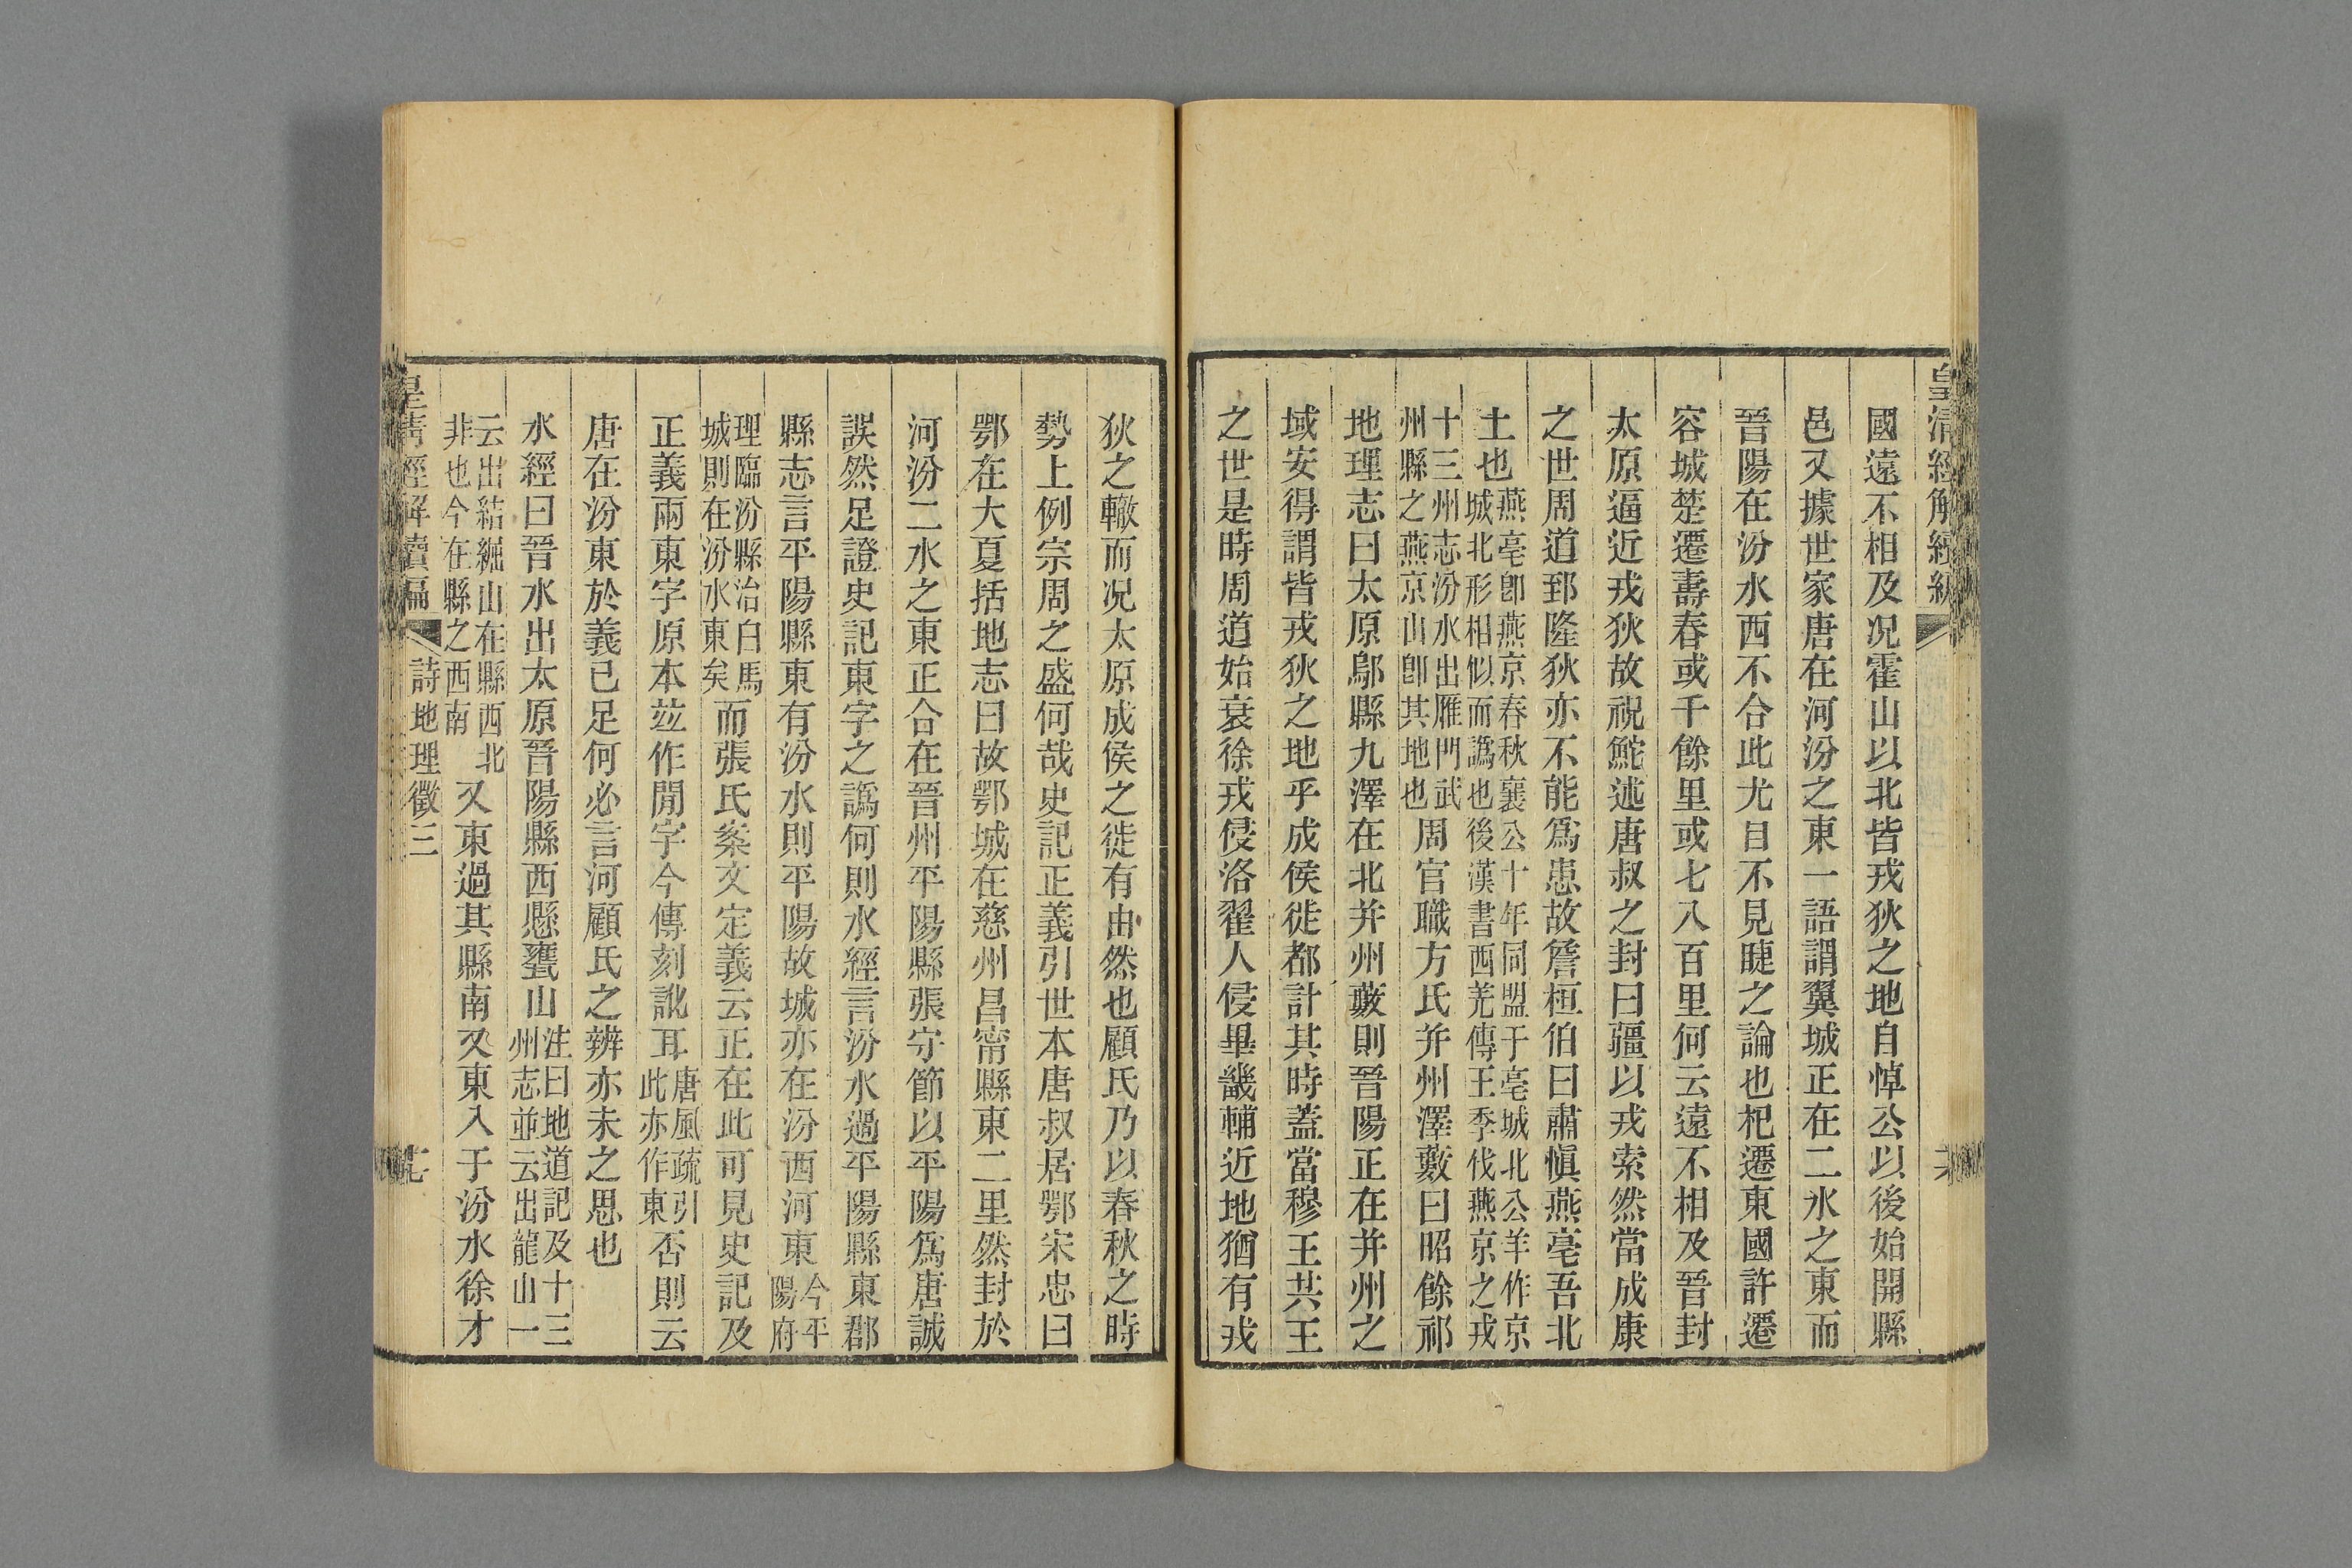 皇清經解續編
國遠不相及况霍山以北皆戎狄之地自悼公以後始開縣
邑又據世家唐在河汾之東一語謂翼城正在二水之東而
晉陽在汾水西不合此尤目不見睫之論也杞遷東國許遷
容城楚遷壽春或千餘里或七八百里何云遠不相及晉封
太原逼近戎狄故祝鮀述唐叔之封曰疆以戎索然當成康
之世周道郅隆狄亦不能爲患故詹桓伯曰肅愼燕亳吾北
土也燕亳卽燕京春秋襄公十年同盟于亳城北公羊作京
城北形相似而譌也後漢書西羌傳王季伐燕京之戎
十三州志汾水出雁門武
州縣之燕京山卽其地也周官職方氏并州澤藪曰昭餘祁
地理志曰太原鄔縣九澤在北并州藪則晉陽正在并州之
域安得謂皆戎狄之地乎成侯徙都計其時蓋當穆王共王
之世是時周道始衰徐戎侵洛翟人侵畢畿輔近地猶有戎
狄之轍而况太原成侯之徙有由然也顧氏乃以春秋之時
勢上例宗周之盛何哉史記正義引世本唐叔居鄂宋忠曰
鄂在大夏括地志曰故鄂城在慈州昌甯縣東二里然封於
河汾二水之東正合在晉州平陽縣張守節以平陽爲唐誠
誤然足證史記東字之譌何則水經言汾水過平陽縣東郡
縣志言平陽縣東有汾水則平陽故城亦在汾西河東今平
陽府
理臨汾縣治白馬
城則在汾水東矣而張氏案文定義云正在此可見史記及
正義兩東字原本竝作閒字今傳刻訛耳唐風疏引
此亦作東否則云
唐在汾東於義已足何必言河顧氏之辨亦未之思也
水經曰晉水出太原晉陽縣西懸壅山注曰地道記及十三
州志並云出龍山一
云出結絀山在縣西北
非也今在縣之西南又東過其縣南又東入于汾水徐才
皇清經解續編
詩地理徵三